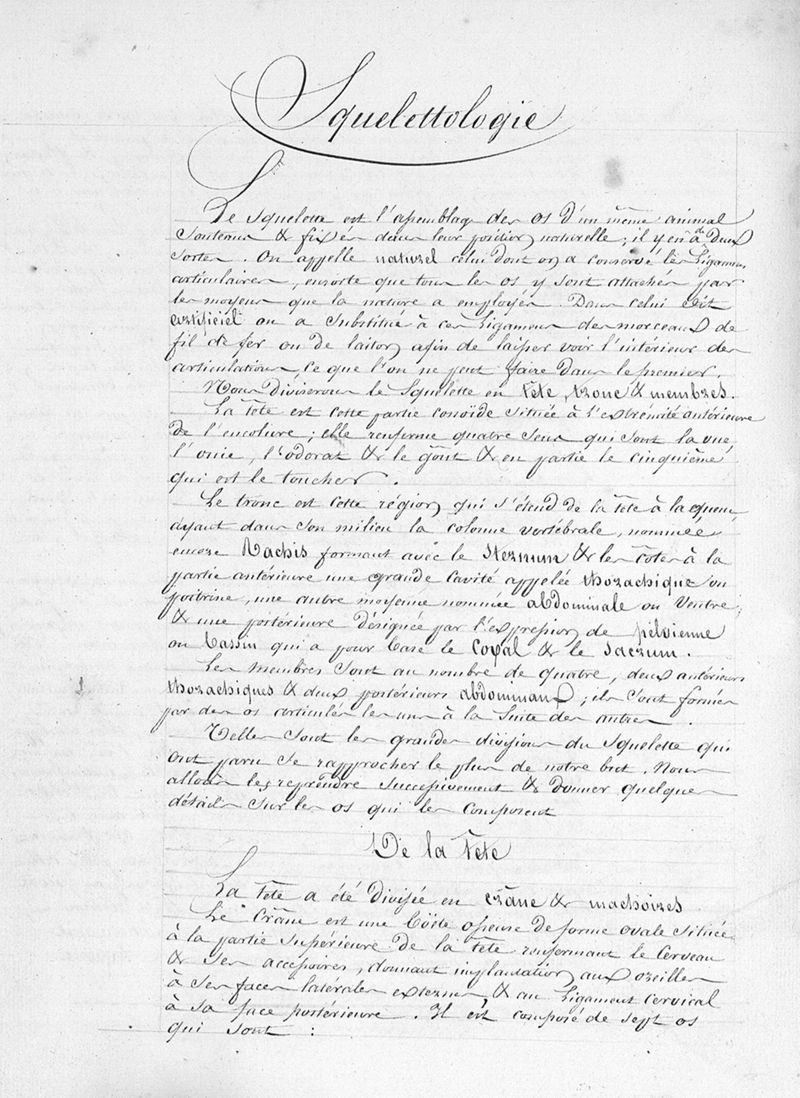 Squelettologie
Le Squelette est l'assemblage des os d'un même animal
soutenus & fixés dans leur position naturelle ; il y en a de deux
sortes. On appelle naturel celui dont on a conservé les Ligamens
articulaires, ensorte que tous les os y sont attachés par
les moyens que la nature a employés. Dans celui dit
artificiel on a substitué à ces Ligamens des morceaux de
fil de fer ou de laiton afin de laisser voir l'intérieur des
articulations ce que l'on ne peut faire dans le premier.
Nous diviserons le Squelette en tête, tronc & membres.
La tête est cette partie conoïde située à l'extrémité antérieure
de l'encolure ; elle renferme quatre sens qui sont la vue,
l'ouie, l'odorat & le gout & en partie le cinquième
qui est le toucher.
Le tronc est cette région qui s'étend de la tête à la queue,
ayant dans son milieu la colonne vertébrale, nommée
encore Rachis formant avec le sternum & les côtes à la
partie antérieure une grande cavité appelée thorachique ou
poitrine, une autre moyenne nommée abdominale ou Ventre,
& une postérieure désignée par l'expression de pelvienne
ou bassin qui a pour base le coxal & le sacrum.
Les membres sont au nombre de quatre, deux antérieurs
thorachiques & deux postérieurs abdominaux ; ils sont formés
par des os articulés les uns à la suite des autres.
Telles sont les grandes divisions du Squelette qui
ont paru se rapprocher le plus de notre but. Nous
allons les reprendre successivement & donner quelques
détails sur les os qui les composent
De la Tête
La tête a été divisée en crâne & machoires
Le Crâne est une Boîte osseuse de forme ovale située
à la partie supérieure de la tête renfermant le Cerveau
& ses accessoires, donnant implantation aux oreilles
à ses faces latérales externes & au Ligament cervical
à sa face postérieure. Il est composé de sept os
qui sont :